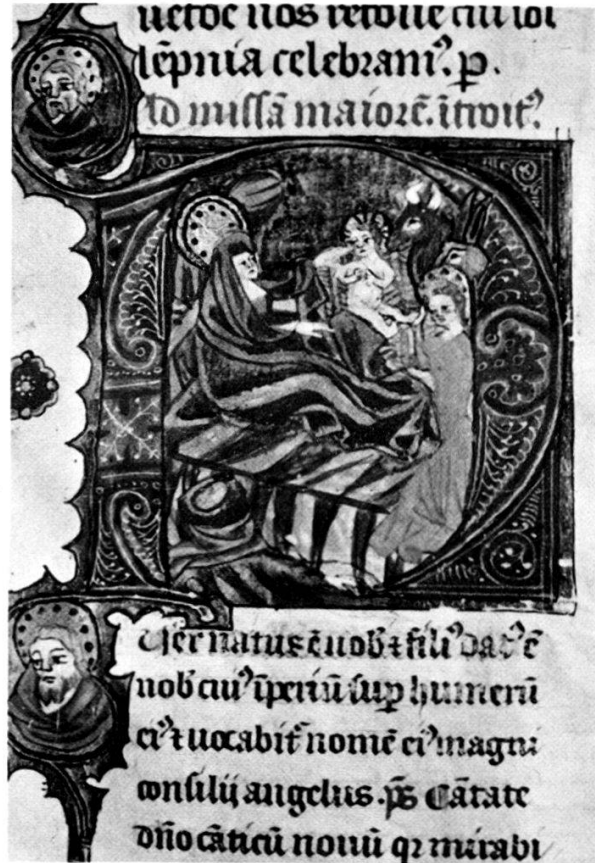 nos
lēpnia celebram᷒. p̱.
Ad missā maiorē. ītroit᷒.
Uer natus ē nob̄ ⁊ fili᷒ dat᷒ ē
nob̄ cui᷒ īperiū sup̱ humerū
ei᷒ ⁊ uocabit᷑ nomē ei᷒ magni
consilij angelus. p̄s Cātate
dn̄o cāticū nouū qꝛ mirabi